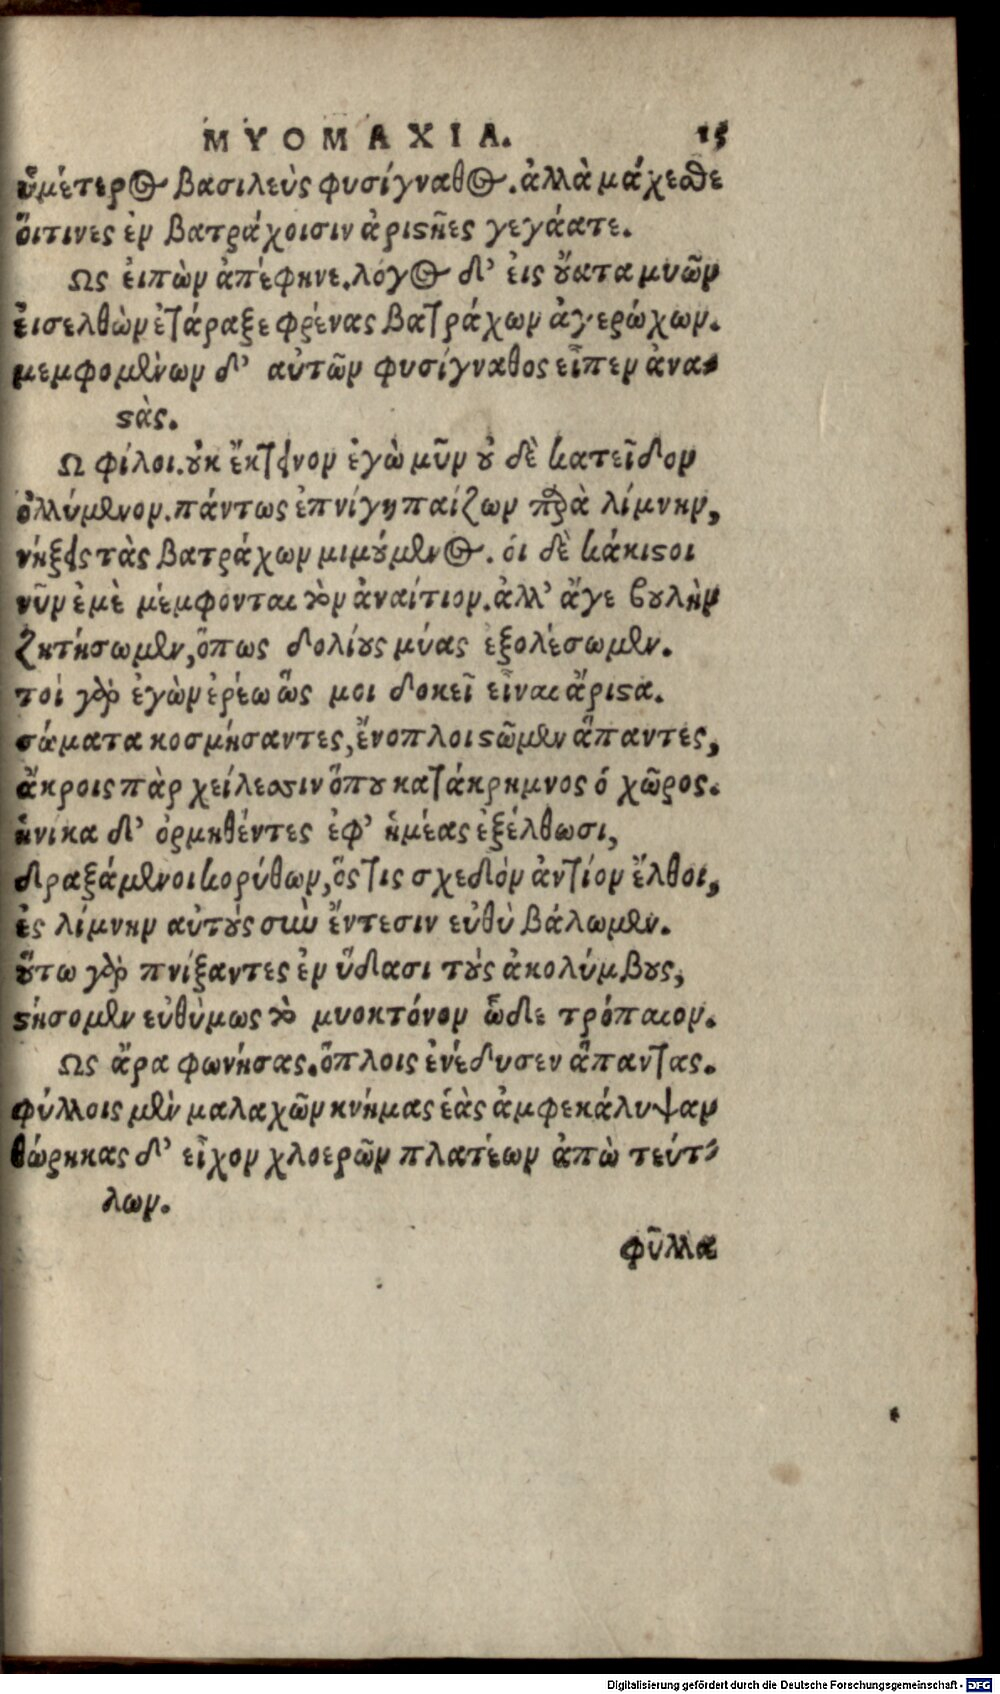 ΜΥΟΜΑΧΙΑ. 15
ὑμέτερος βασιλεὺς φυσίγναθος. ἀλλὰ μάχεσθε
ὅιτινες ἐν βατράχοισιν ἀριστῆες γεγάατε.
Ως ἐιπὼν ἀπέφηνε. λόγος δ' ἐις ὄυατα μυῶν
ἐισελθὼν ἐτάραξε φρένας βατράχων ἀγερώχων.
μεμφομένων δ' αὐτῶν φυσίγναθος εἶπεν ἀνα-
στὰς.
Ω φίλοι. ὀυκ ἔκτεινον ἐγὼ μῦν ὀυ δὲ κατεῖδον
ὀλλύμενον. πάντως ἐπνίγη παίζων παρὰ λίμνην,
νήξεις τὰς βατράχων μιμούμενος. ὁι δὲ κάκιστοι
νῦν ἐμὲ μέμφονται τὸν ἀναίτιον. ἀλλ' ἄγε βουλὴν
ζητήσωμεν, ὅπως δολίους μύας ἐξολέσωμεν.
τοὶ γὰρ ἐγὼν ἐρέω ὥς μοι δοκεῖ εἶναι ἄριστα.
σώματα κοσμήσαντες, ἔνοπλοι στῶμεν ἅπαντες,
ἄκροις πὰρ χείλεσσιν ὅπου κατάκρημνος ὁ χῶρος.
ἡνίκα δ' ὁρμηθέντες ἐφ' ἡμέας ἐξέλθωσι,
δραξάμενοι κορύθων, ὅςτις σχεδὸν ἀντίον ἔλθοι,
ἐς λίμνην αὐτοὺς σὺν ἔντεσιν εὐθὺ βάλωμεν.
ὄυτω γὰρ πνίξαντες ἐν ὕδασι τοὺς ἀκολύμβους,
στήσομεν εὐθύμως τὸ μυοκτόνον ὧδε τρόπαιον.
Ως ἄρα φωνήσας. ὅπλοις ἐνέδυσεν ἅπαντας.
φύλλοις μὲν μαλαχῶν κνήμας ἑὰς ἀμφεκάλυψαν
θώρηκας δ' εἶχον χλοερῶν πλατέων ἀπὼ τεύτ-
λων.
φῦλλα
Digitalisierung gefördert durch die Deutsche Forschungsgemeinschaft - DFG